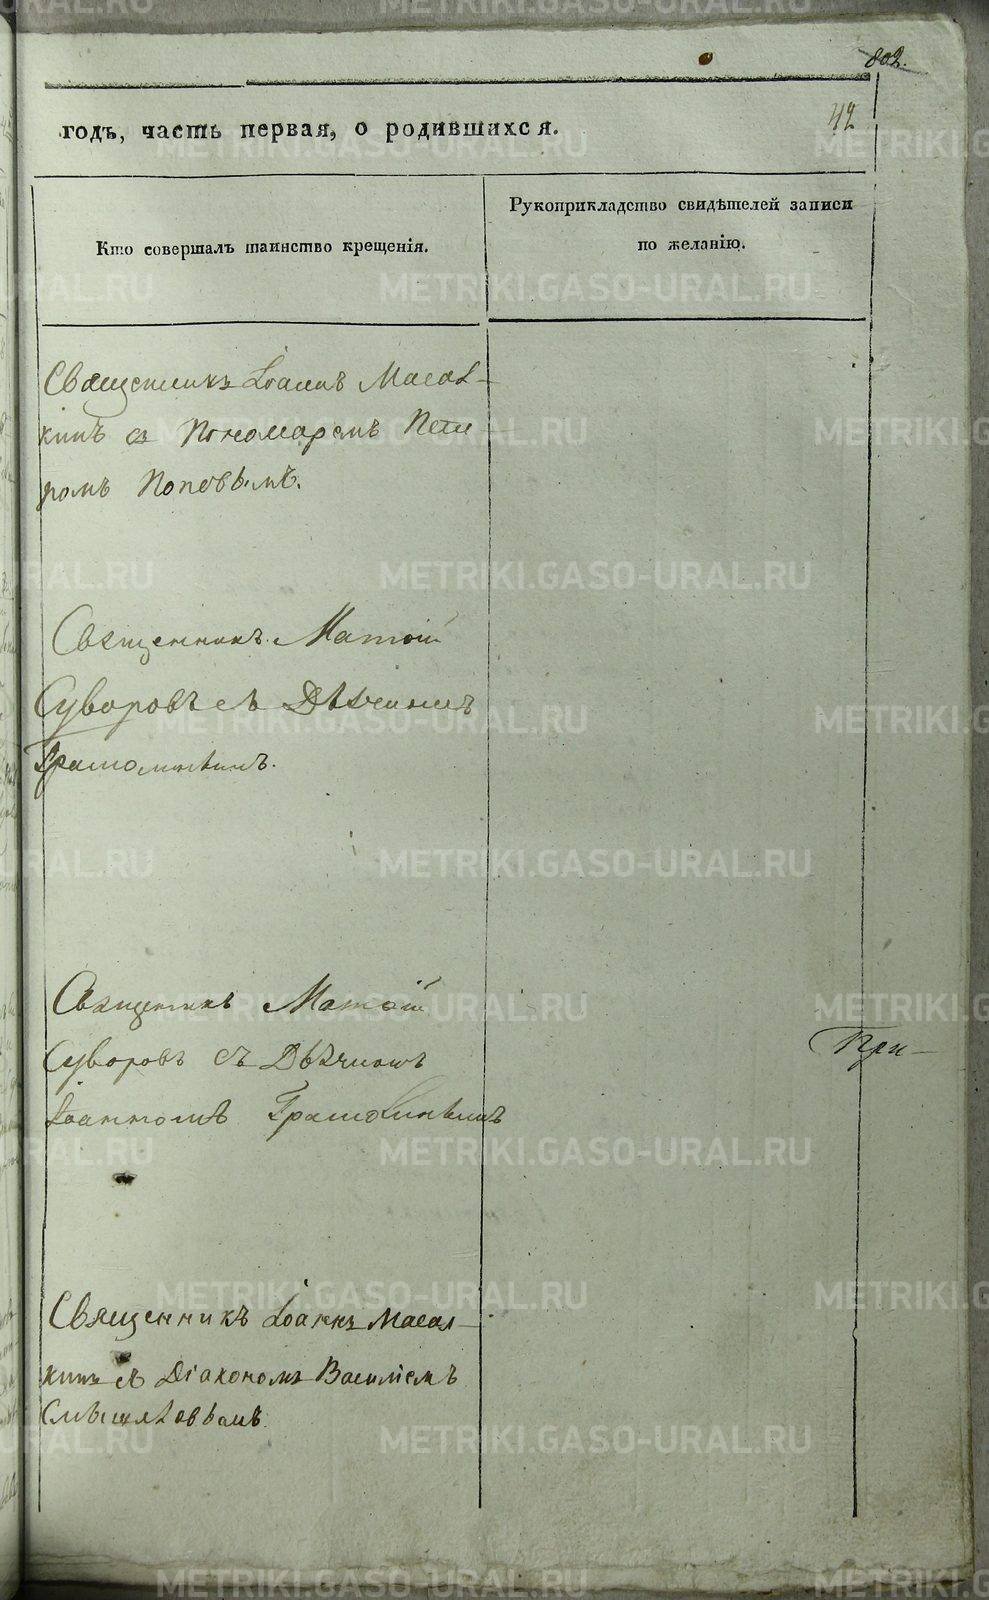 802.
42
годъ, часть первая, о родившихся.
Кто совершалъ таинство крещенія.
Рукоприкладство свидѣтелей записи
по желанію.
Священникъ Іоаннъ Масал-
кинъ съ Пономаремъ Пет-
ромъ Поповымъ.
Священникъ Матѳій
Суворовъ съ Дьячкомъ
Священникъ Матѳій
Суворовъ съ Дьячкомъ
Іоанномъ
При-
Священникъ Іоаннъ Масал-
кинъ съ Діакономъ Василіемъ
METRIKI.GASO-URAL.RU